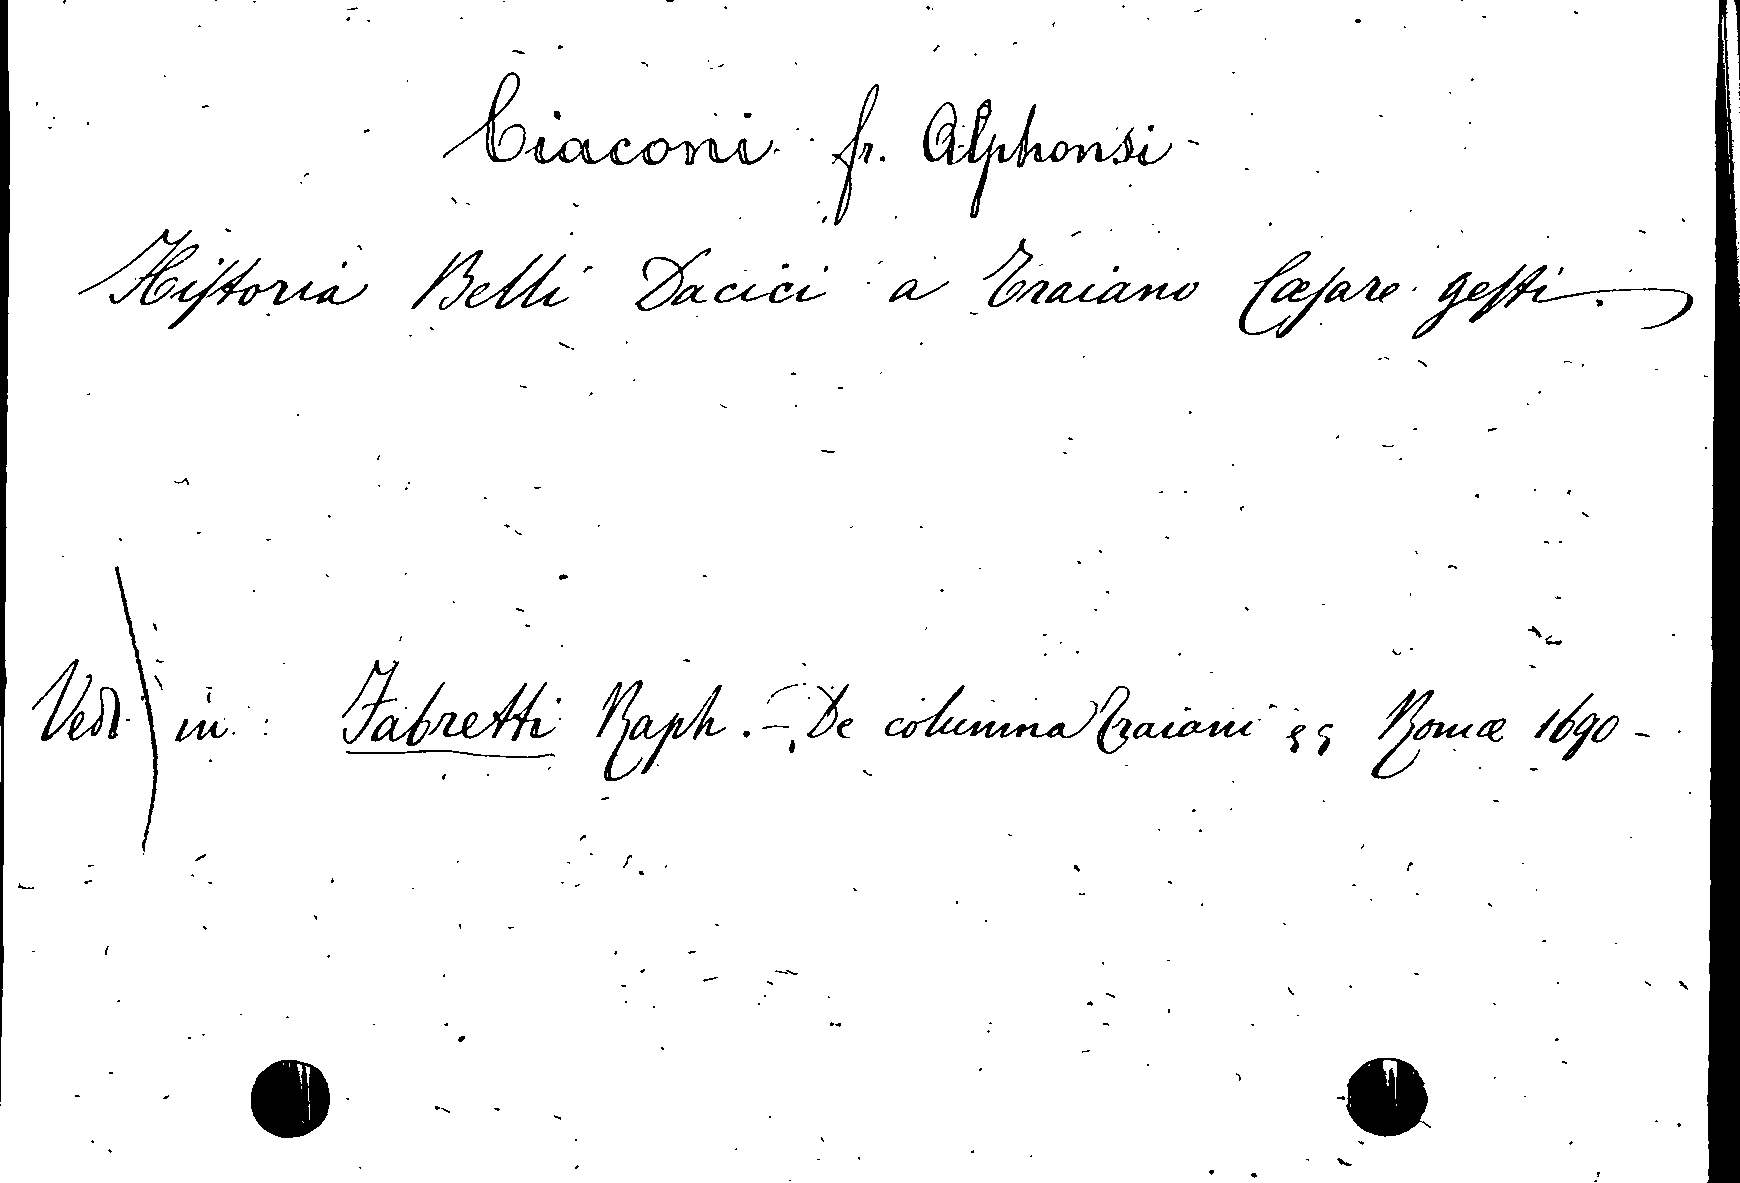 Ciaconi fr. Alphonsi
Hiſtoria Belli Dacici a Traiano Cæſare geſti.
Vedi in: Fabretti Raph. - De columna Traiani Romæ 1690 -